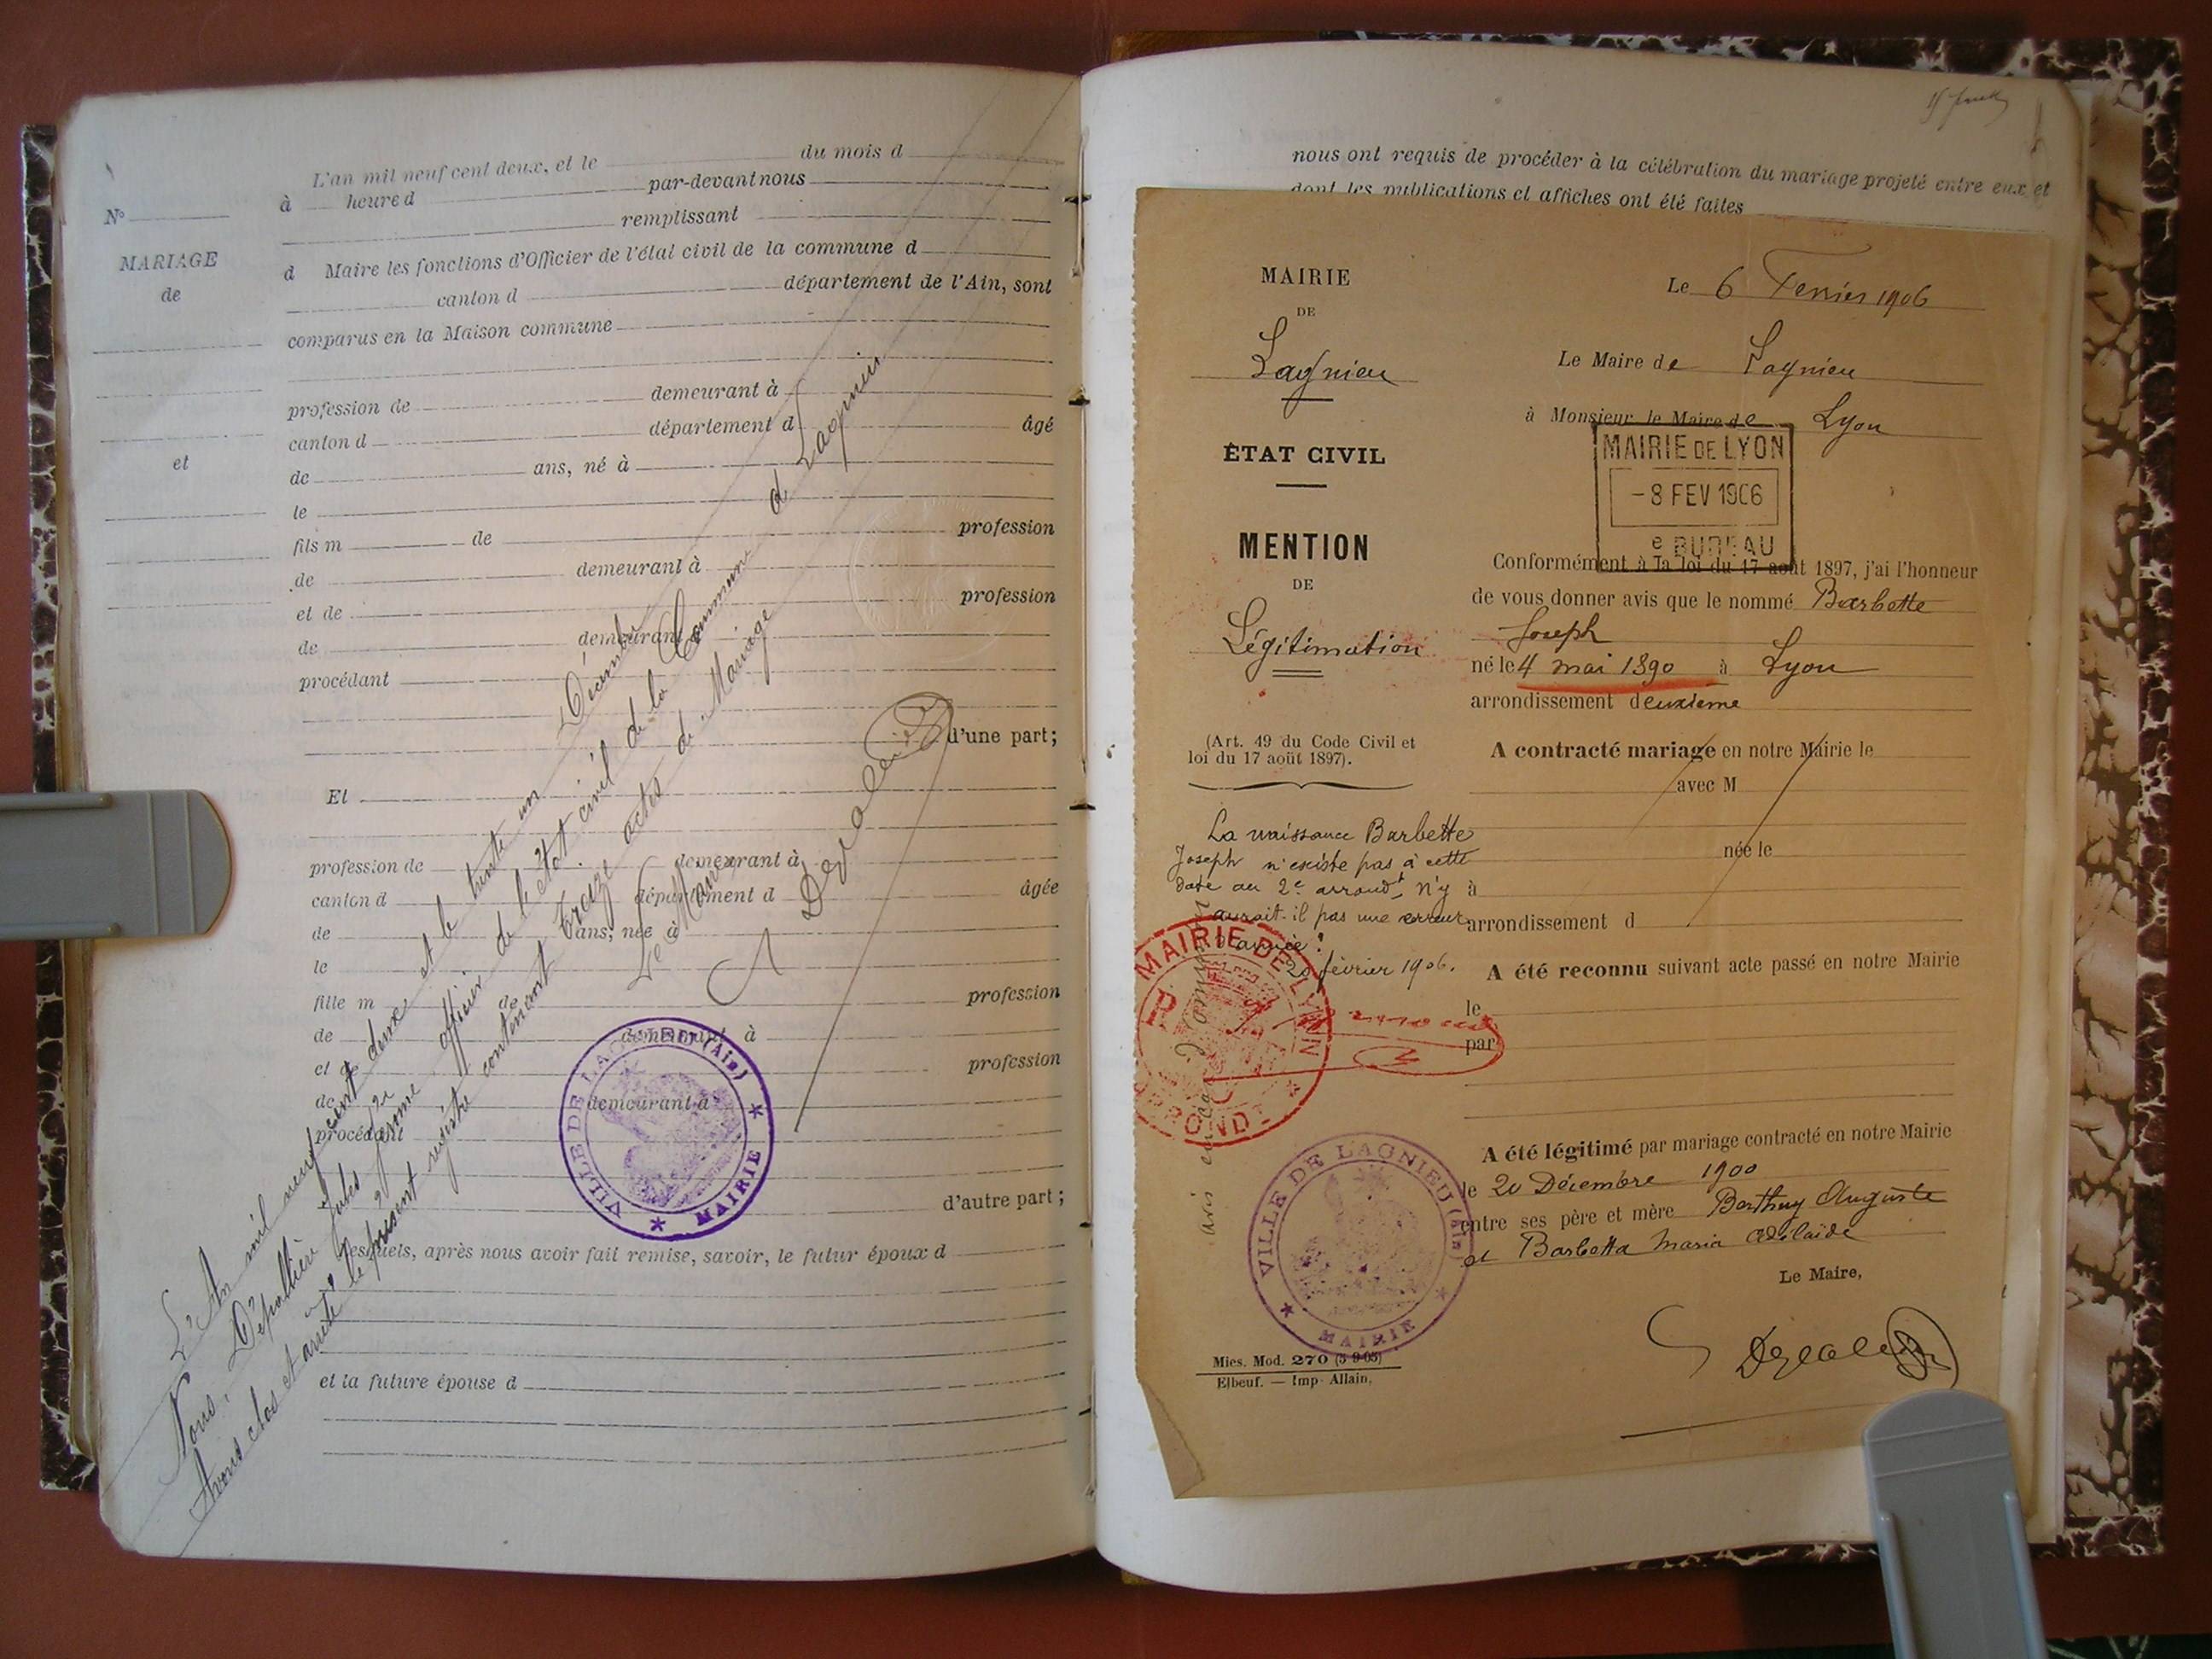 L'an mil neuf cent deux, et le du mois d
à heure d par-devant nous
N° remplissant
MARIAGE
de
d Maire les fonctions d'Officier de l'état civil de la commune d
canton d département de l'Ain, sont
comparus en la Maison commune
profession de demeurant à
canton d département d âgé
et
de ans, né à
le
fils m de profession
de demeurant à
et de profession
de demeurant à
procédant
d'une part;
Et
profession de demeurant à
canton d département d âgée
de ans, née à
le
fille m de profession
de demeurant à
et de profession
de demeurant à
procédant
d'autre part;
lesquels, après nous avoir fait remise, savoir, le futur époux d
et la future épouse d
L'An mil neuf cent deux et le trente un Décembre
Nous, Dépallière Jules Jérome officier de l'état civil de la Commune d Lagnieu
Avons clos et arrêté le présent registre contenant treize actes de Mariage
Le Maire
VILLE DE LAGNIEU (Ain)
MAIRIE
nous ont requis de procéder à la célébration du mariage projeté entre eux et
dont les publications et affiches ont été faites
MAIRIE
DE
Lagnieu
ÉTAT CIVIL
MENTION
DE
Légitimation
(Art. 49 du Code Civil et
loi du 17 août 1897).
La naissance Barbette
Joseph n'existe pas à cette
date au 2e arrondt, n'y
aurait-il pas une erreur
d'année?
20 février 1906.
MAIRIE DE LYON
VILLE DE LAGNIEU (Ain)
MAIRIE
Mies. Mod. 270 (5-9-05)
Elbeuf. — Imp. Allain.
Le 6 Fevrier 1906
Le Maire de Lagnieu
à Monsieur le Maire de Lyon
MAIRIE DE LYON
-8 FEV 1906
e BUREAU
Conformément à la loi du 17 août 1897, j'ai l'honneur
de vous donner avis que le nommé Barbette
Joseph
né le 4 mai 1890 à Lyon
arrondissement deuxième
A contracté mariage en notre Mairie le
avec M
née le
à
arrondissement d
A été reconnu suivant acte passé en notre Mairie
le
par
A été légitimé par mariage contracté en notre Mairie
le 20 Décembre 1900
entre ses père et mère Berthuy Auguste
et Barbetta Maria Adélaïde
Le Maire,